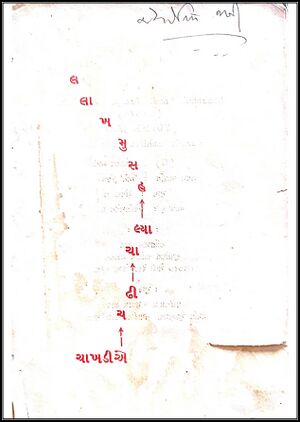 લ
લા
ખ
મુ
સ
હ
લ્યા
ચા
ઢી
ચ
ચાખડીએ